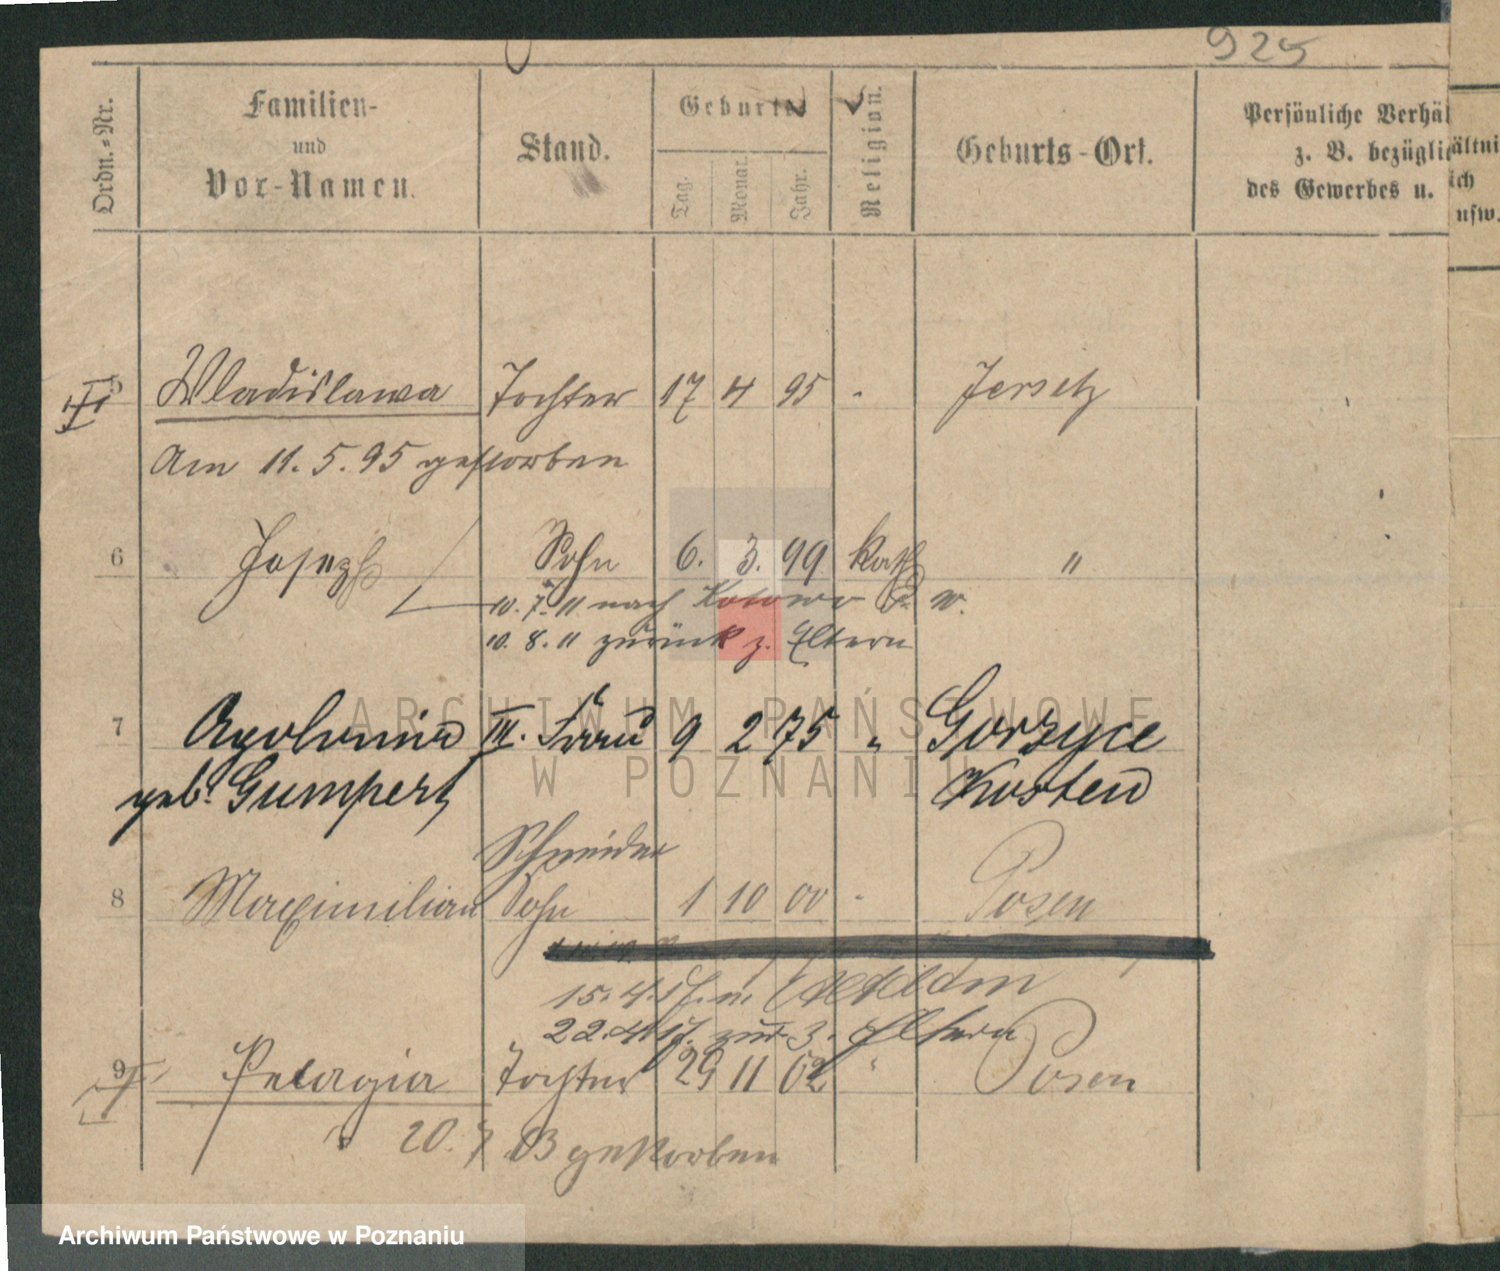 925
Ordn.=Nr.
Familien-
und
Vor-Namen.
Stand.
Geburts
Tag.
Monat.
Jahr.
Religion.
Geburts-Ort.
Persönliche Verhältni
z. B. bezüglich
des Gewerbes u. usw.
5 Wladislawa Tochter 17 4 95 " Jersitz
Am 11. 5. 95 gestorben
6 Joseph Sohn 6. 3. 99 kath "
10. 7. 11 nach Kotowo P. W.
10. 8. 11 zurück z. Eltern
7 Apolonia III. Frau 9 2 75 " Gorzyce
geb. Gumpert Kosten
Schneider
8 Maximilian Sohn 1 10 00 " Posen
15. 4. 17. n.
22. 4. 17. zur. z. Eltern
9 Pelagia Tochter 29 11 02 " Posen
20. 7 03 gestorben
ARCHIWUM PAŃSTWOWE
W POZNANIU
Archiwum Państwowe w Poznaniu